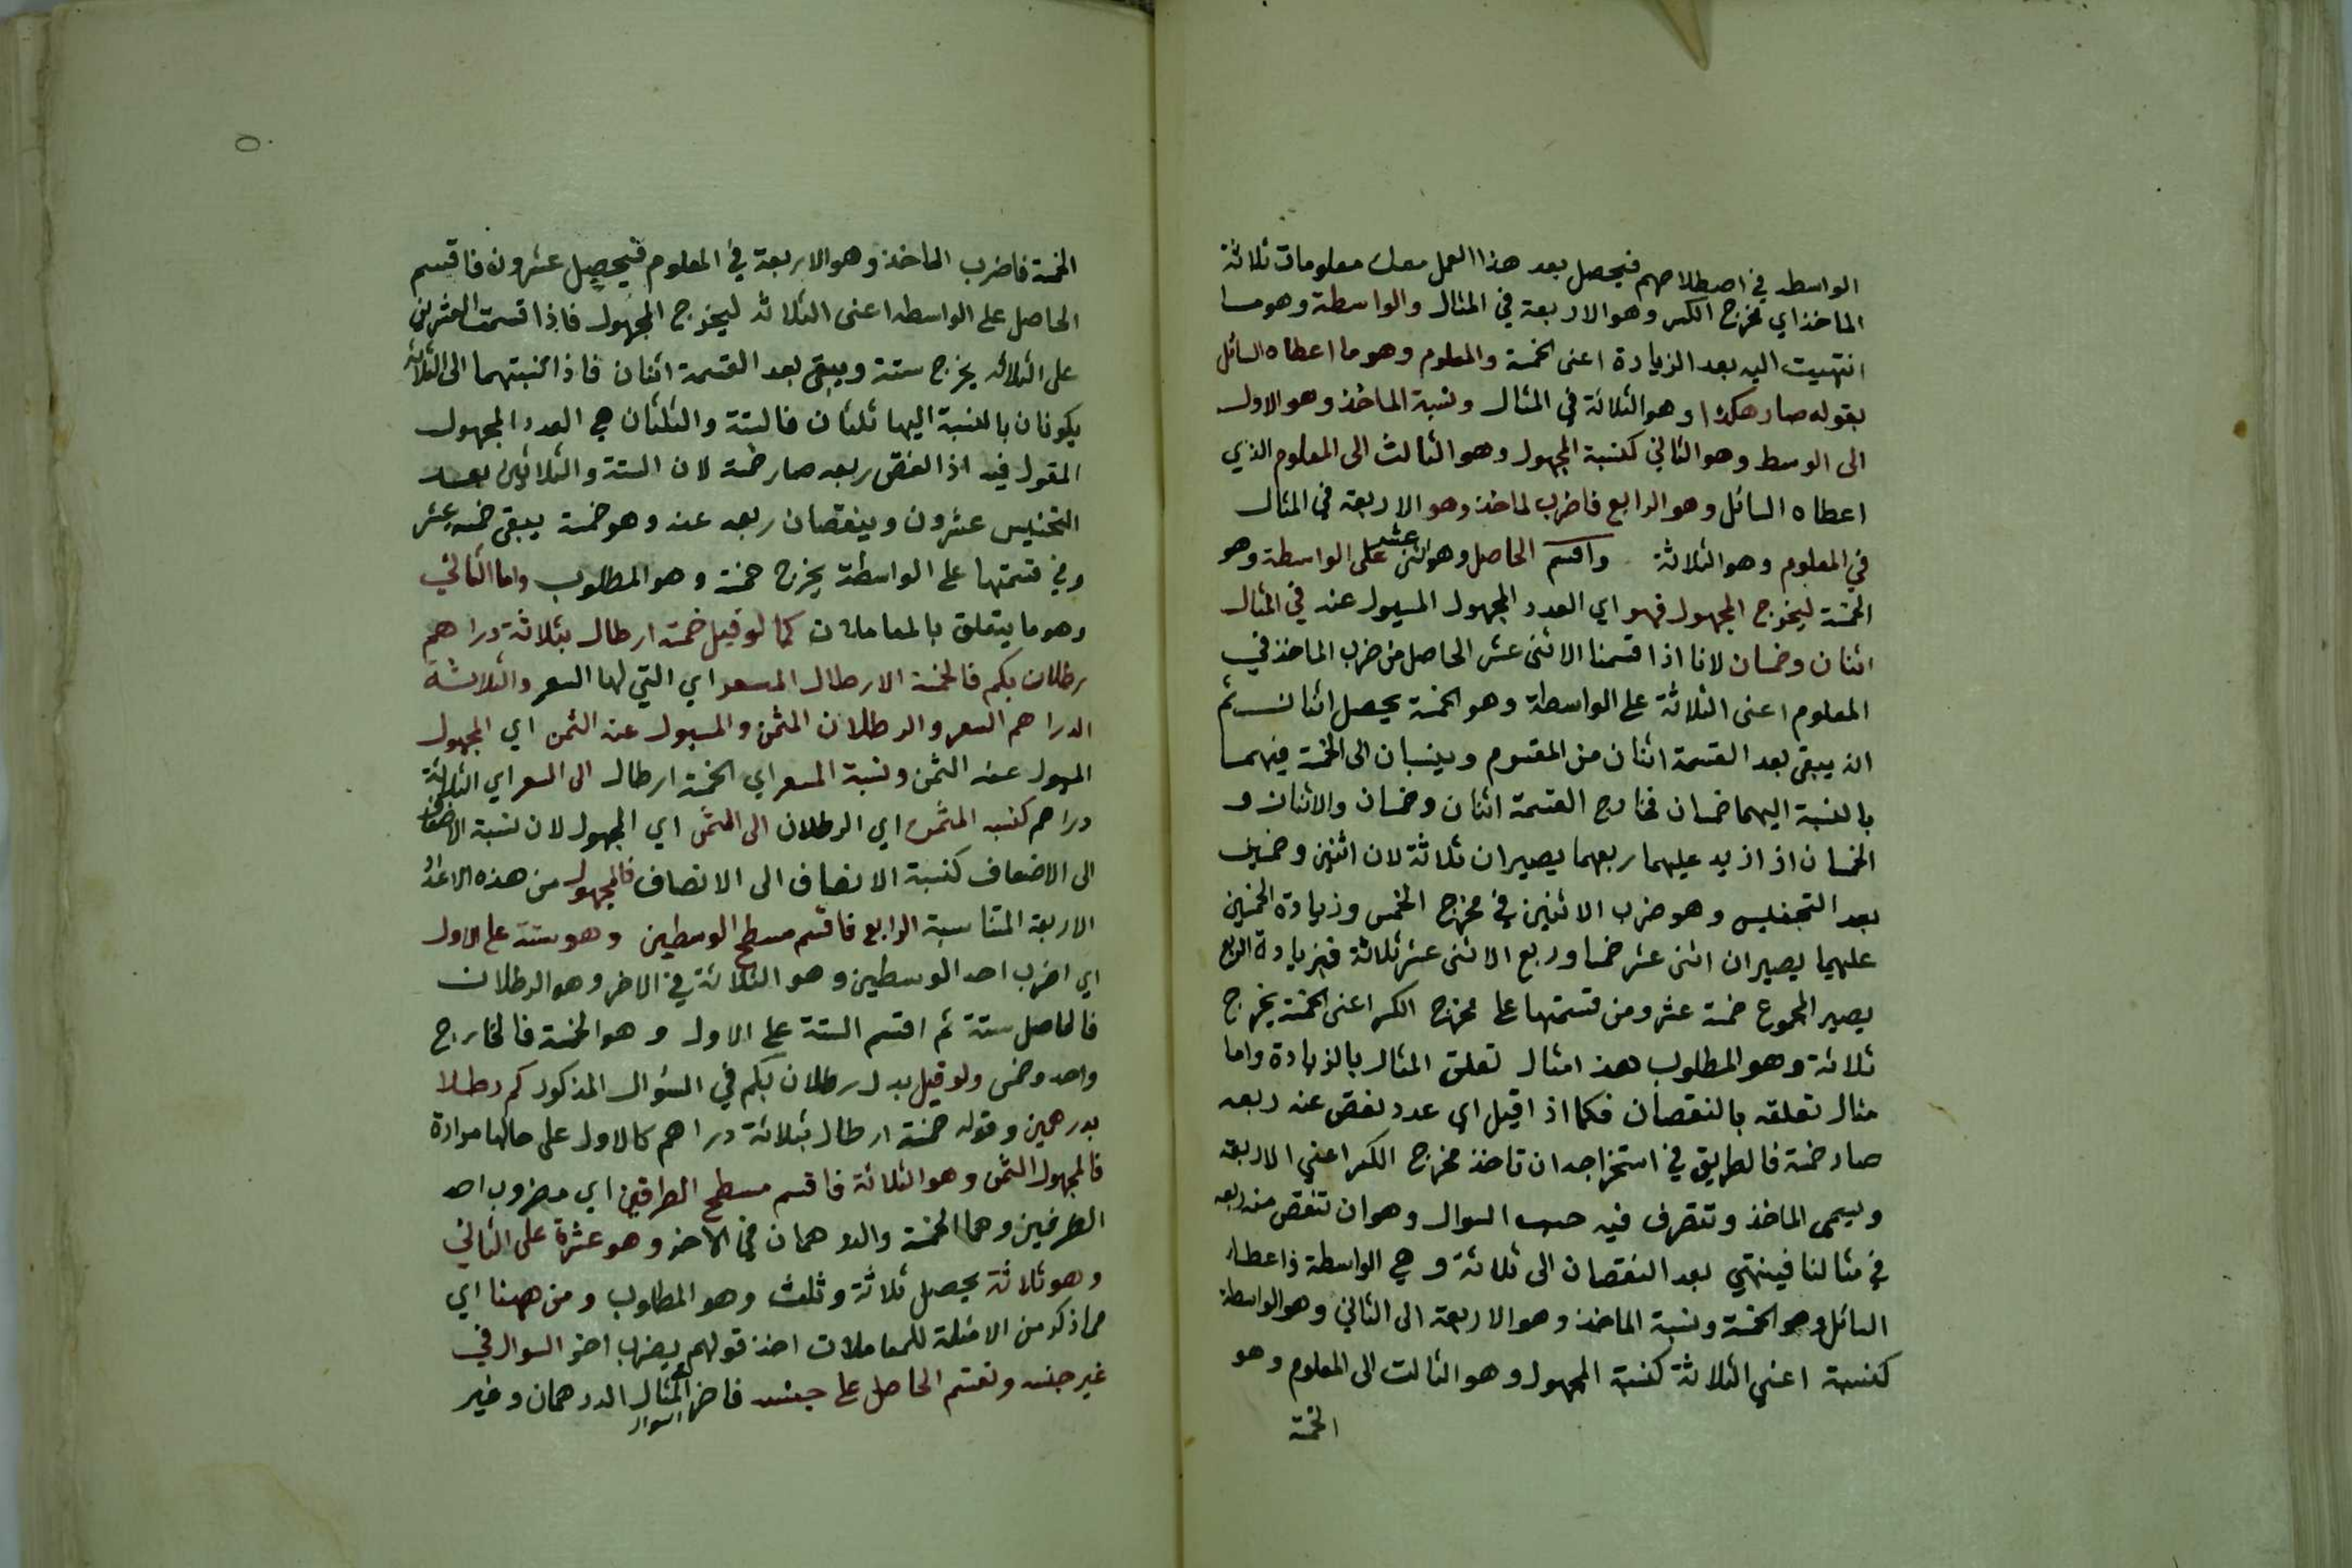 الواسطه في اصطلاحهم فيحصل بعد هذا العمل معك معلومات ثلاثة
الماخذ اي مخرج الكسر وهو الاربعة في المثال والواسطة وهو ما
انتهيت اليه بعد الزيادة اعنى الخمسة والمعلوم وهو ما اعطاه السائل
بقوله صار هكذا وهو الثلاثة في المثال ونسبة الماخذ وهو الاول
الى الوسط وهو الثاني كنسبة المجهول وهو الثالث الى المعلوم الذي
اعطاه السائل وهو الرابع فاضرب لماخذ وهو الاربعة في المثال
في المعلوم وهو الثلاثة واقسم الحاصل وهو اثنى عشر على الواسطة وهو
الخمسة ليخرج المجهول فهو اي العدد المجهول المسيول عنه في المثال
اثنان وخمسان لانا اذا قسمنا الاثنى عشر الحاصل من ضرب الماخذ في
المعلوم اعنى الثلاثة على الواسطة وهو الخمسة يحصل اثنان ثم
انه يبقى بعد القسمة اثنان من المقسوم وينسبان الى الخمسة فهما
بالنسبة اليهما خمسان فخارج القسمة اثنان وخمسان والاثنان و
الخمسان اذ ازيد عليهما ربعهما يصيران ثلاثة لان اثنين وخمسين
بعد التجنيس وهو ضرب الاثنين في مخرج الخمس وزيادة الخمسين
عليهما يصيران اثنى عشر خمسا وربع الاثنى عشر ثلاثة فبزيادة الربع
يصير المجموع خمسة عشر ومن قسمتها على مخرج الكسر اعنى الخمسة يخرج
ثلاثة وهو المطلوب هذا مثال تعلق المثال بالزيادة واما
مثال تعلقه بالنقصان فكما اذ اقيل اي عدد نقص عنه ربعه
صار خمسة فالطريق في استخراجه ان تاخذ مخرج الكسر اعني الاربعة
ويسمى الماخذ وتتصرف فيه حسب السوال وهو ان تنقص منه ربعه
في مثالنا فينتهي بعد النقصان الى ثلاثة و هي الواسطة فاعطاه
السائل وهو الخمسة ونسبة الماخذ وهو الاربعة الى الثاني وهو الواسطة
كنسبة اعني الثلاثة كنسبة المجهول وهو الثالث الى المعلوم وهو
الخمسة
٥٠
الخمسة فاضرب الماخذ وهو الاربعة في المعلوم فيحصل عشرون فاقسم
الحاصل على الواسطه اعنى الثلاثه ليخرج المجهول فاذا قسمت العشرين
على الثلاثه يخرج ستة ويبقى بعد القسمة اثنان فاذا نسبتهما الى الثلاثه
يكونان بالنسبة اليها ثلثان فالستة والثلثان هي العدد المجهول
المقول فيه اذا انقص ربعه صار خمسة لان الستة والثلاثين بعد
التجنيس عشرون وبنقصان ربعه عنه وهو خمسة يبقى خمسه عشر
وفي قسمتها على الواسطة يخرج خمسة وهو المطلوب واما الثاني
وهو ما يتعلق بالمعاملات كما لو قيل خمسة ارطال بثلاثة دراهم
رطلان بكم فالخمسة الارطال المسعر اي التي لها السعر والثلاثة
الدراهم السعر والرطلان المثمن والمسيول عنه الثمن اي المجهول
المسول عنه الثمن ونسبة المسعر اي الخمسة ارطال الى السعر اي الثلاثة
دراهم كنسبه المثمن اي الرطلان الى الثمن اي المجهول لان نسبة الاضعاف
الى الاضعاف كنسبة الانصاف الى الانصاف فالمجهول من هذه الاعداد
الاربعة المتناسبة الرابع فاقسم مسطح الوسطين وهو ستة على الاول
اي اضرب احد الوسطين وهو الثلاثة في الاخر وهو الرطلان
فالحاصل ستة ثم اقسم الستة على الاول وهو الخمسة فالخارج
واحد وخمس ولو قيل بدل رطلان بكم في السؤال المذكور كم رطلا
بدرهمين وقوله خمسة ارطال بثلاثة دراهم كالاول على حالها مرادة
فالمجهول المثمن وهو الثلاثة فاقسم مسطح الطرفين اي مضروب احد
الطرفين وهما الخمسة والدرهمان في الاخر وهو عشرة على الثاني
وهو ثلاثة يحصل ثلاثة وثلث وهو المطلوب ومن ههنا اي
مما ذكر من الامثلة للمعاملات اخذ قولهم يضرب اخر السوال في
غير جنسه ونقسم الحاصل على جنسه فاخر المثال الدرهمان وغير
السوال